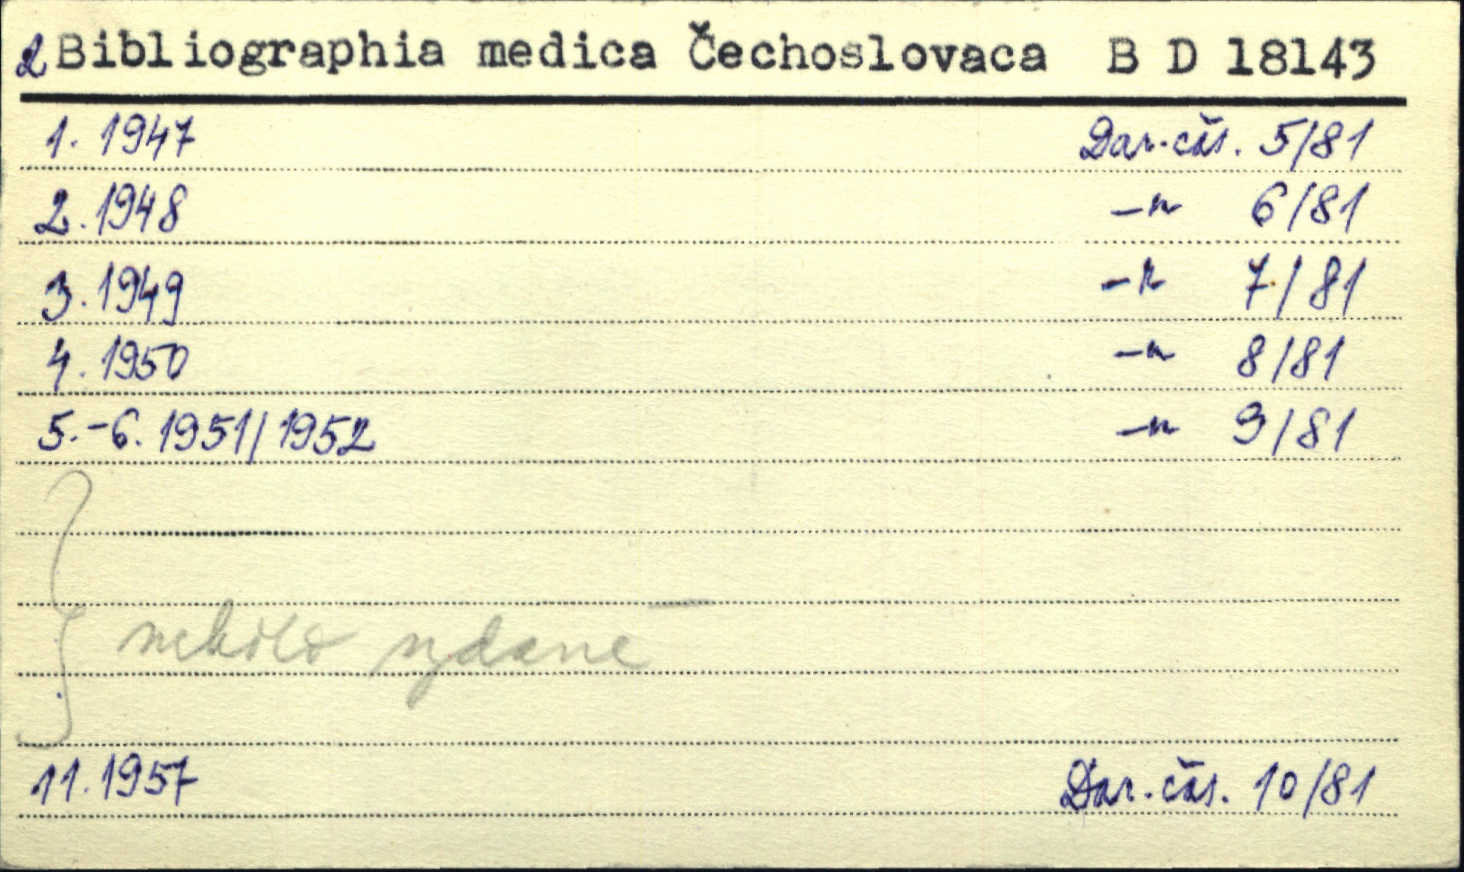 2 Bibliographia medica Čechoslovaca B D 18143
1. 1947 Dar. čas. 5/81
2. 1948 -"- 6/81
3. 1949 -"- 7/81
4. 1950 -"- 8/81
5.-6. 1951/1952 -"- 9/81
nebolo vydané
11. 1957 Dar. čas. 10/81